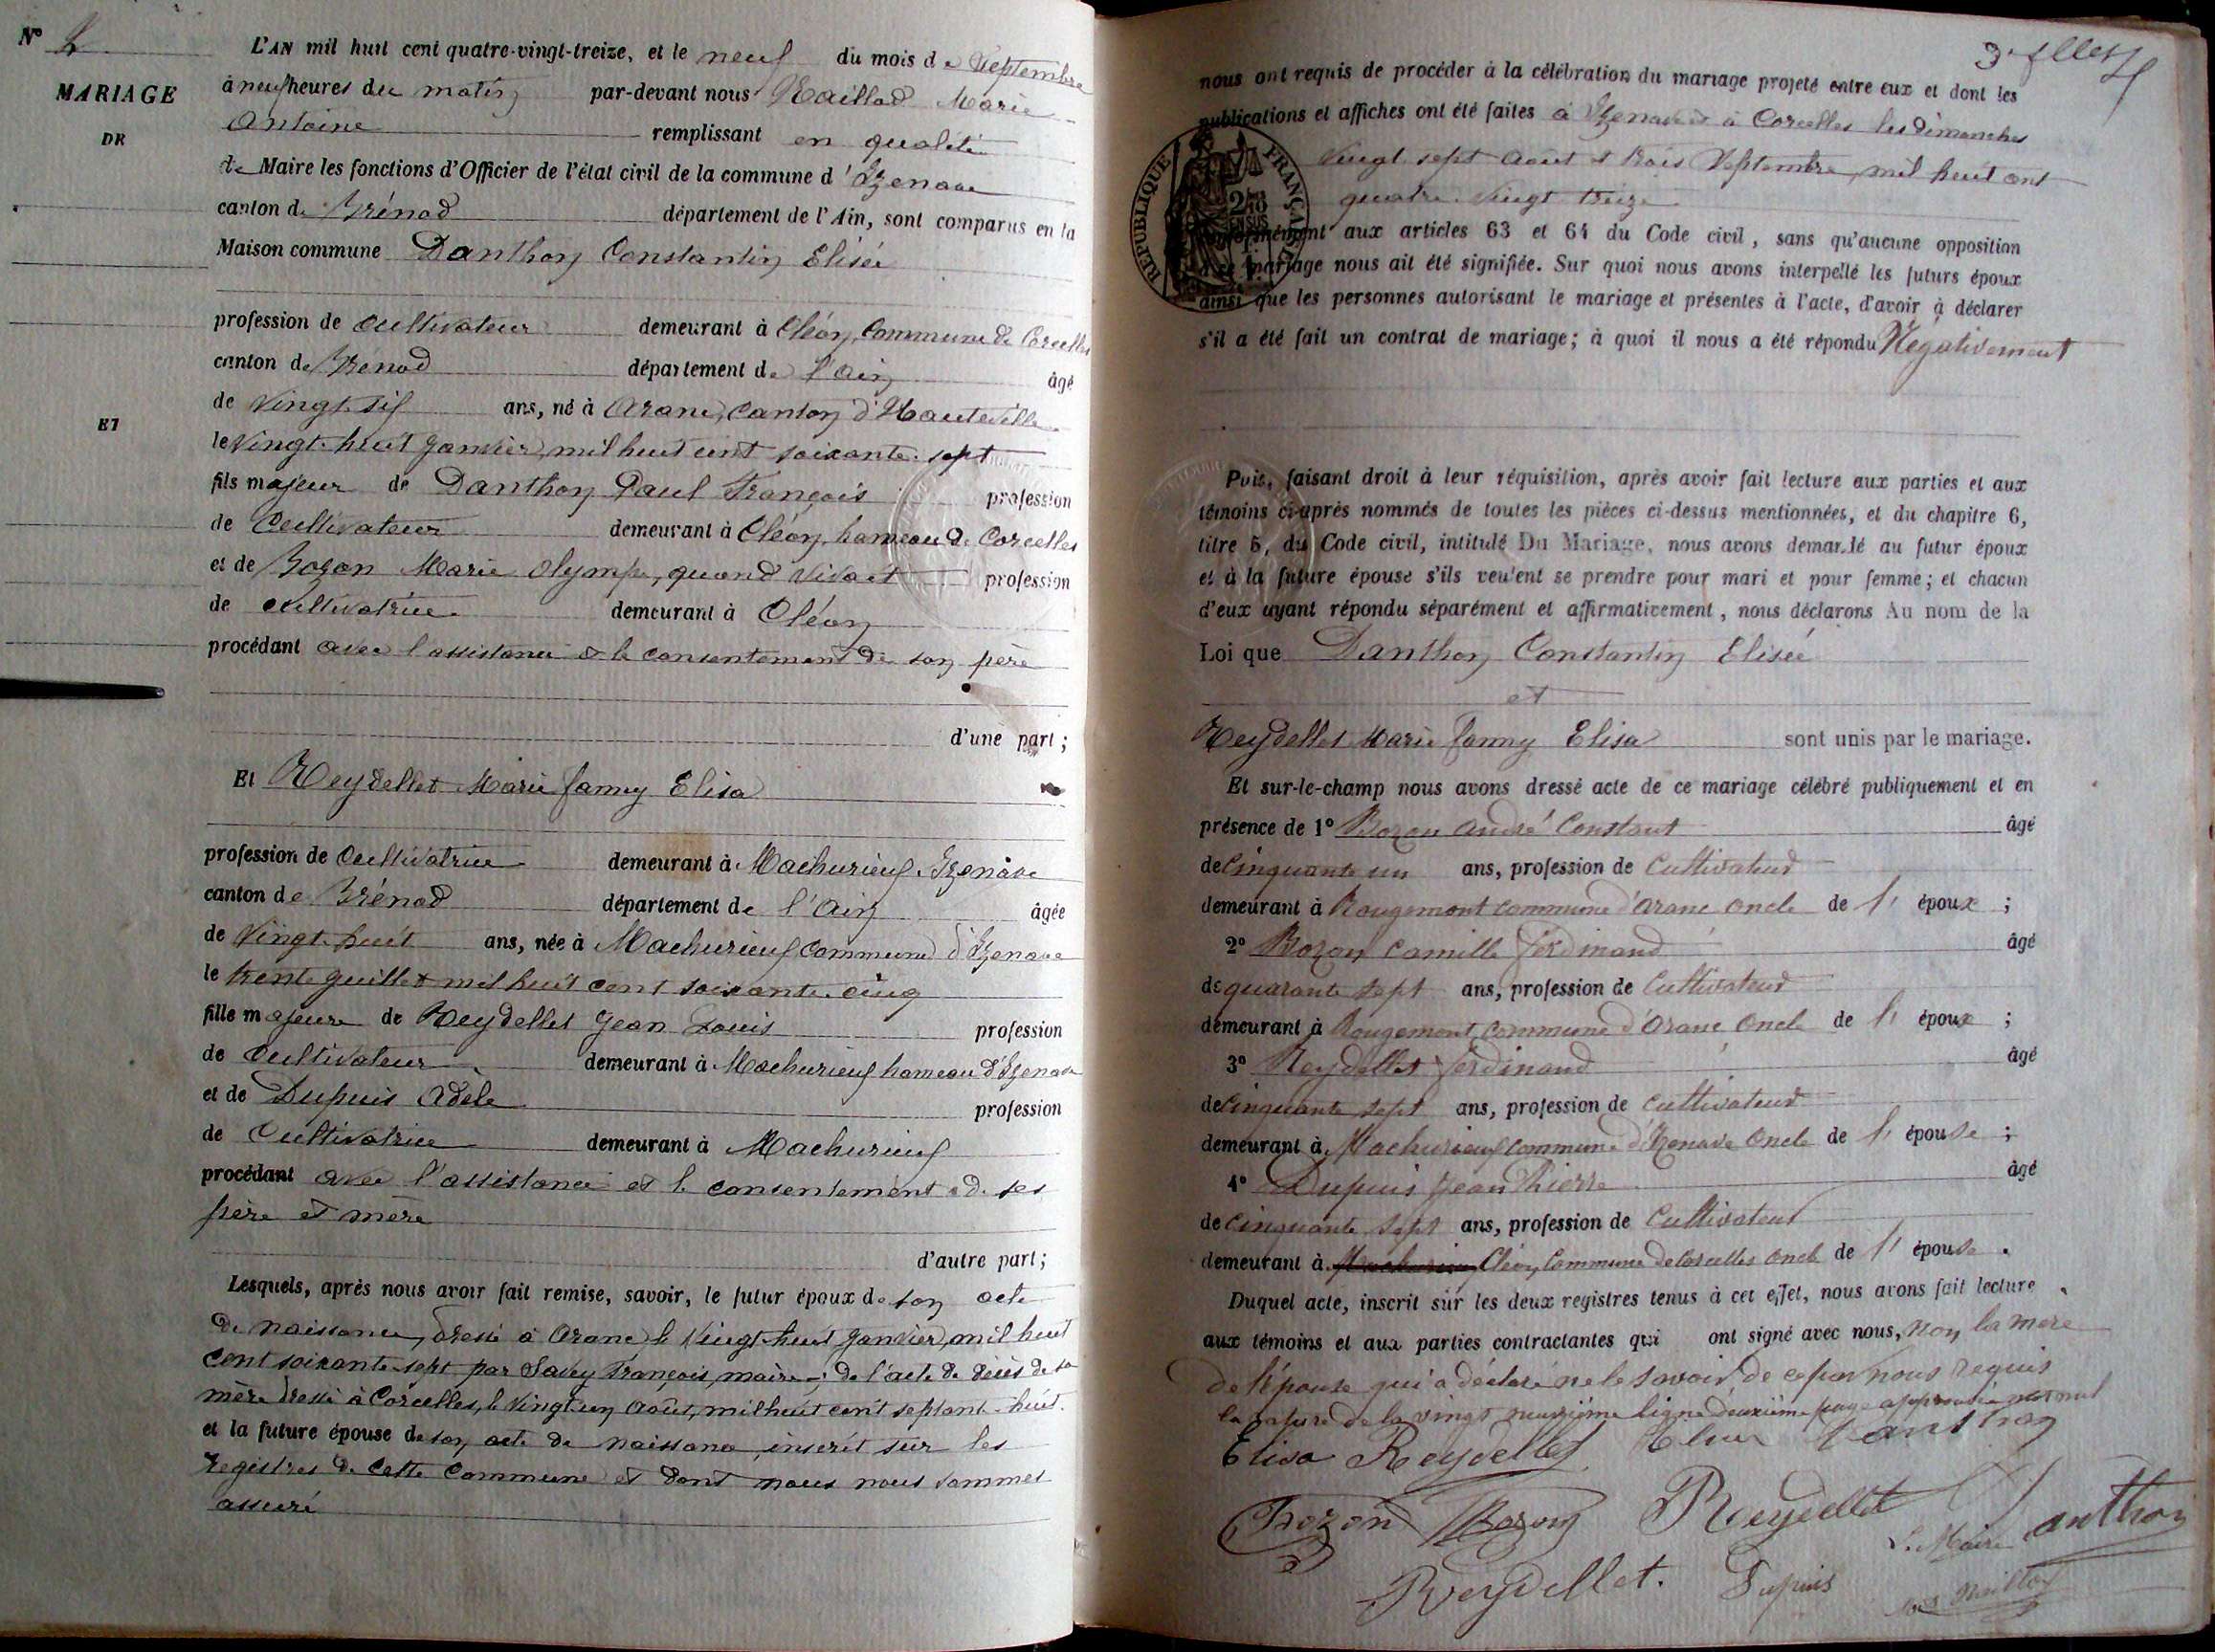 N° 2
MARIAGE
DE
ET
L'AN mil huit cent quatre-vingt-treize, et le neuf du mois de Septembre
à neuf heures du matin par-devant nous Maillod Marie
Antoine remplissant en qualité
de Maire les fonctions d'Officier de l'état civil de la commune d'Izenave
canton de Brénod département de l'Ain, sont comparus en la
Maison commune Danthon Constantin Elisée
profession de cultivateur demeurant à Cléon, Commune de Corcelles
canton de Brenod département de l'Ain âgé
de Vingt-six ans, né à Aranc, canton d'Hauteville
le Vingt-huit Janvier, mil huit cent soixante-sept
fils majeur de Danthon Paul François profession
de Cultivateur demeurant à Cléon, hameau de Corcelles
et de Bozon Marie Olympe, quand vivait profession
de cultivatrice demeurant à Cléon
procédant avec l'assistance & le consentement de son père
d'une part ;
Et Reydellet Marie fanny Elisa
profession de Cultivatrice demeurant à Machurieux Izenave
canton de Brénod département de l'Ain âgée
de Vingt-huit ans, née à Machurieux commune d'Izenave
le trente Juillet mil huit cent soixante-cinq
fille majeure de Reydellet Jean Louis profession
de Cultivateur demeurant à Machurieux hameau d'Izenave
et de Dupuis Adèle profession
de Cultivatrice demeurant à Machurieux
procédant avec l'assistance et le consentement de ses
père et mère
d'autre part ;
Lesquels, après nous avoir fait remise, savoir, le futur époux de son acte
de naissance, dressé à Aranc, le Vingt-huit Janvier, mil huit
cent soixante-sept par Savey François, maire ; de l'acte de décès de sa
mère dressé à Corcelles, le Vingt un Août, mil huit cent septante-huit.
et la future épouse de son acte de naissance inscrit sur les
registres de cette Commune et dont nous nous sommes
assuré
nous ont requis de procéder à la célébration du mariage projeté entre eux et dont les
publications et affiches ont été faites à Izenave et à Corcelles les dimanches
vingt sept Août & trois Septembre, mil huit cent
quatre vingt treize
RÉPUBLIQUE FRANÇAISE
conformément aux articles 63 et 64 du Code civil, sans qu'aucune opposition
à ce mariage nous ait été signifiée. Sur quoi nous avons interpellé les futurs époux
ainsi que les personnes autorisant le mariage et présentes à l'acte, d'avoir à déclarer
s'il a été fait un contrat de mariage ; à quoi il nous a été répondu Négativement
Puis, faisant droit à leur réquisition, après avoir fait lecture aux parties et aux
témoins ci-après nommés de toutes les pièces ci-dessus mentionnées, et du chapitre 6,
titre 5, du Code civil, intitulé Du Mariage, nous avons demandé au futur époux
et à la future épouse s'ils veulent se prendre pour mari et pour femme ; et chacun
d'eux ayant répondu séparément et affirmativement, nous déclarons Au nom de la
Loi que Danthon Constantin Elisée
et
Reydellet Marie fanny Elisa sont unis par le mariage.
Et sur-le-champ nous avons dressé acte de ce mariage célébré publiquement et en
présence de 1° Bozon André Constant âgé
de cinquante un ans, profession de Cultivateur
demeurant à Rougemont commune d'Aranc oncle de l'époux ;
2° Bozon Camille Ferdinand âgé
de quarante sept ans, profession de Cultivateur
demeurant à Rougemont, commune d'Aranc Oncle de l'époux ;
3° Reydellet Ferdinand âgé
de cinquante sept ans, profession de Cultivateur
demeurant à Machurieux commune d'Izenave Oncle de l'épouse ;
4° Dupuis Jean Pierre âgé
de cinquante sept ans, profession de Cultivateur
demeurant à Cléon, Commune de Corcelles oncle de l'épouse.
Duquel acte, inscrit sur les deux registres tenus à cet effet, nous avons fait lecture
aux témoins et aux parties contractantes qui ont signé avec nous, non la mère
de l'épouse qui a déclaré ne le savoir de ce par nous requis
la rature de la vingt neuvième ligne deuxième page approuvée mot nul
Elisa Reydellet Elisée Danthon
Bozon Bozon Reydellet Danthon
Le Maire
Reydellet. Dupuis